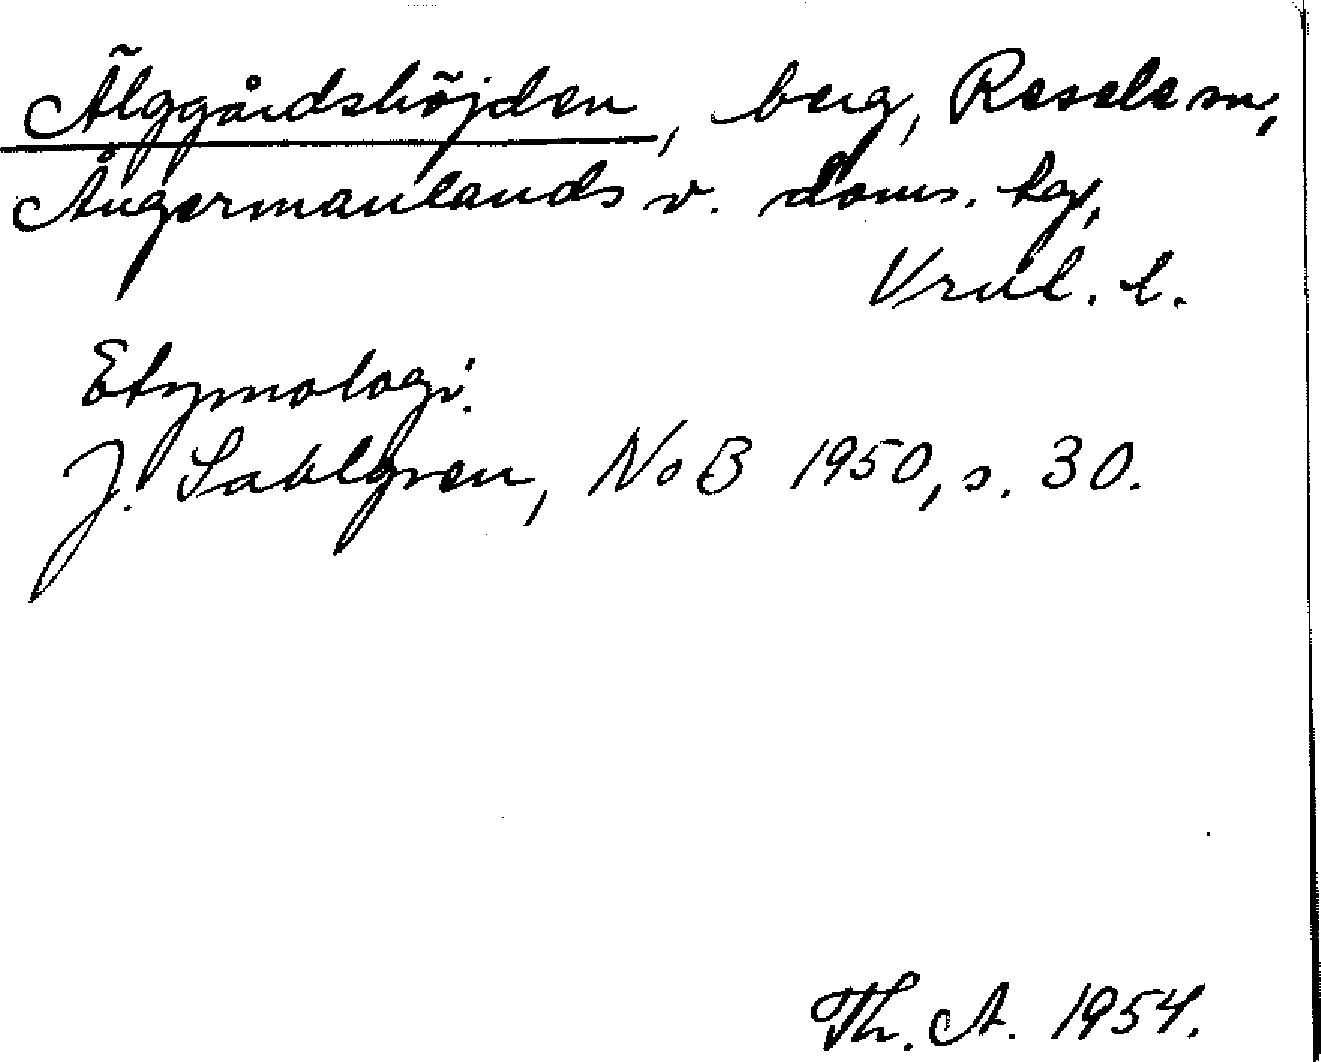 Älggårdshöjden, berg, Resele sn,
Ångermanlands v. doms. tgs,
Vrnl. l.
Etymologi.
J. Sahlgren, NoB 1950, s. 30.
Th. A. 1954.